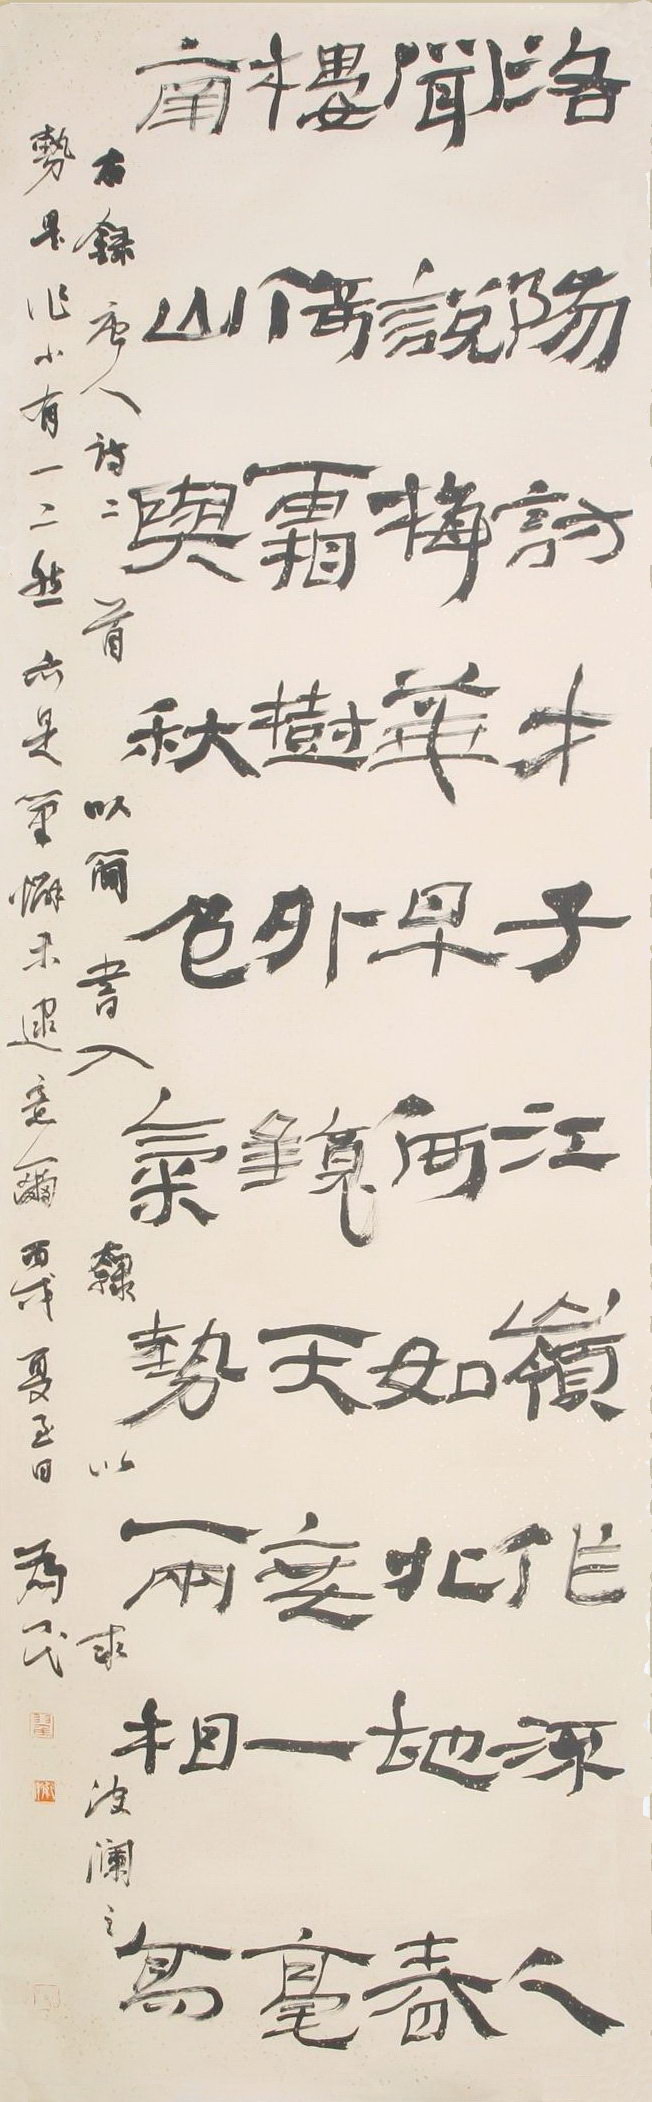 洛陽訪才子江嶺作流人
聞說梅華早何如北地春
樓倚霜樹外鏡天無一毫
南山與秋色氣勢兩相高
右錄唐人詩二首以簡書入隸以求波瀾之
勢是作小有一二然亦是筆懈未逮意爾丙戌夏至日為民